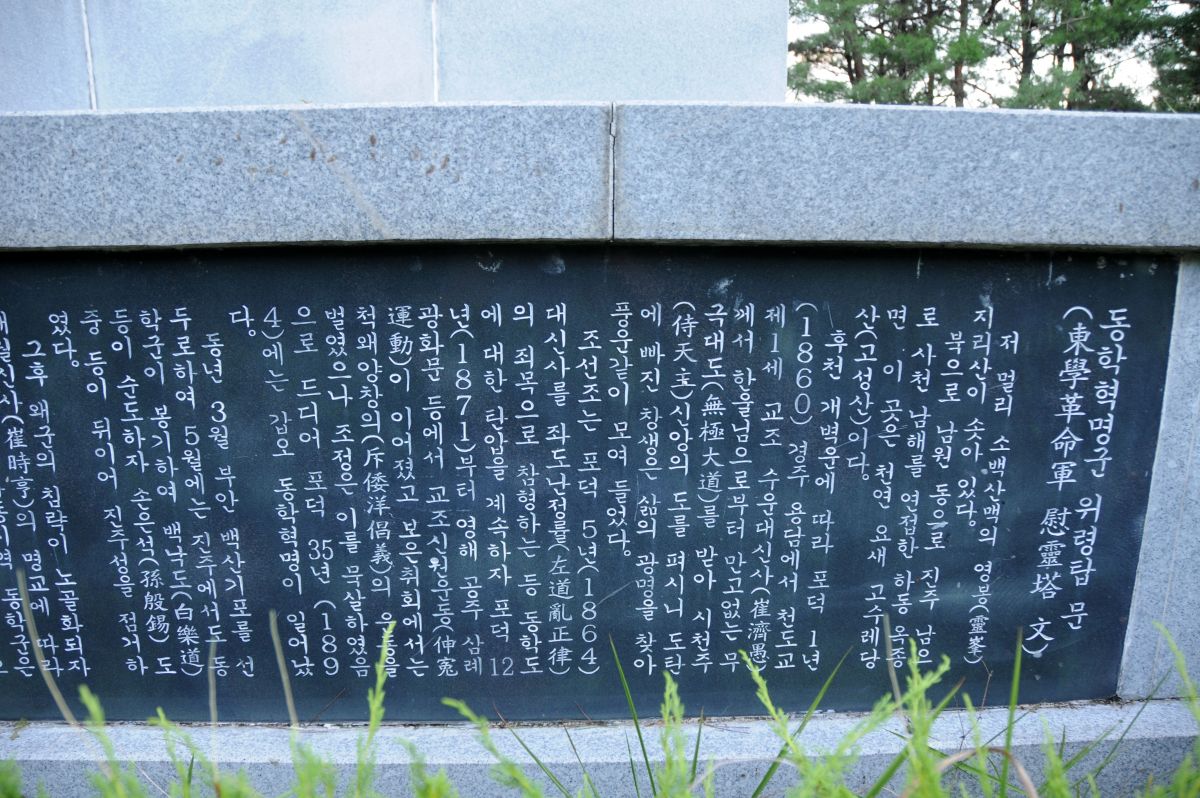 동학혁명군 위령탑 문
(東學革命軍 慰靈塔 文)
저 멀리 소백산맥의 영봉(靈峯)
지리산이 솟아 있있다.
북으로 남원 동으로 진주 남으
로 사천 남해를 연접한 하동 옥종
면 이 곳은 천연 요새 고수레당
산(고성산)이다.
후천 개벽운에 따라 포덕 1년
(1860) 경주 용담에서 천도교
제1세 교조 수운대신사(崔濟愚)
께서 한울님으로부터 만고없는 무
극대도(無極大道)를 받아 시천주
(侍天主)신앙의 도를 펴시니 도탄
에 빠진 창생은 삶의 광명을 찾아
풍운같이 모여 들었다.
조선조는 포덕 5년(1864)
대신사를 좌도난정률(左道亂正律)
의 죄목으로 참형하는 등 동학도
에 대한 탄압을 계속하자 포덕 12
년(1871)부터 영해 공주 삼례
광화문 등에서 교조신원운동(伸寃
運動)이 이어졌고 보은취회에서는
척왜양창의(斥倭洋倡義)의 운동을
벌였으나 조정은 이를 묵살하였음
으로 드디어 포덕 35년(189
4)에는 갑오 동학혁명이 일어났
다.
동년 3월 부안 백산기포를 선
두로하여 5월에는 진주에서도 동
학군이 봉기하여 백낙도(白樂道)
등이 순도하자 손은석(孫殷錫) 도
중 등이 뒤이어 진주성을 점거하
였다.
그후 왜군의 침략이 노골화되자
해월신사(崔時亨)의 명교에 따라
동학군은